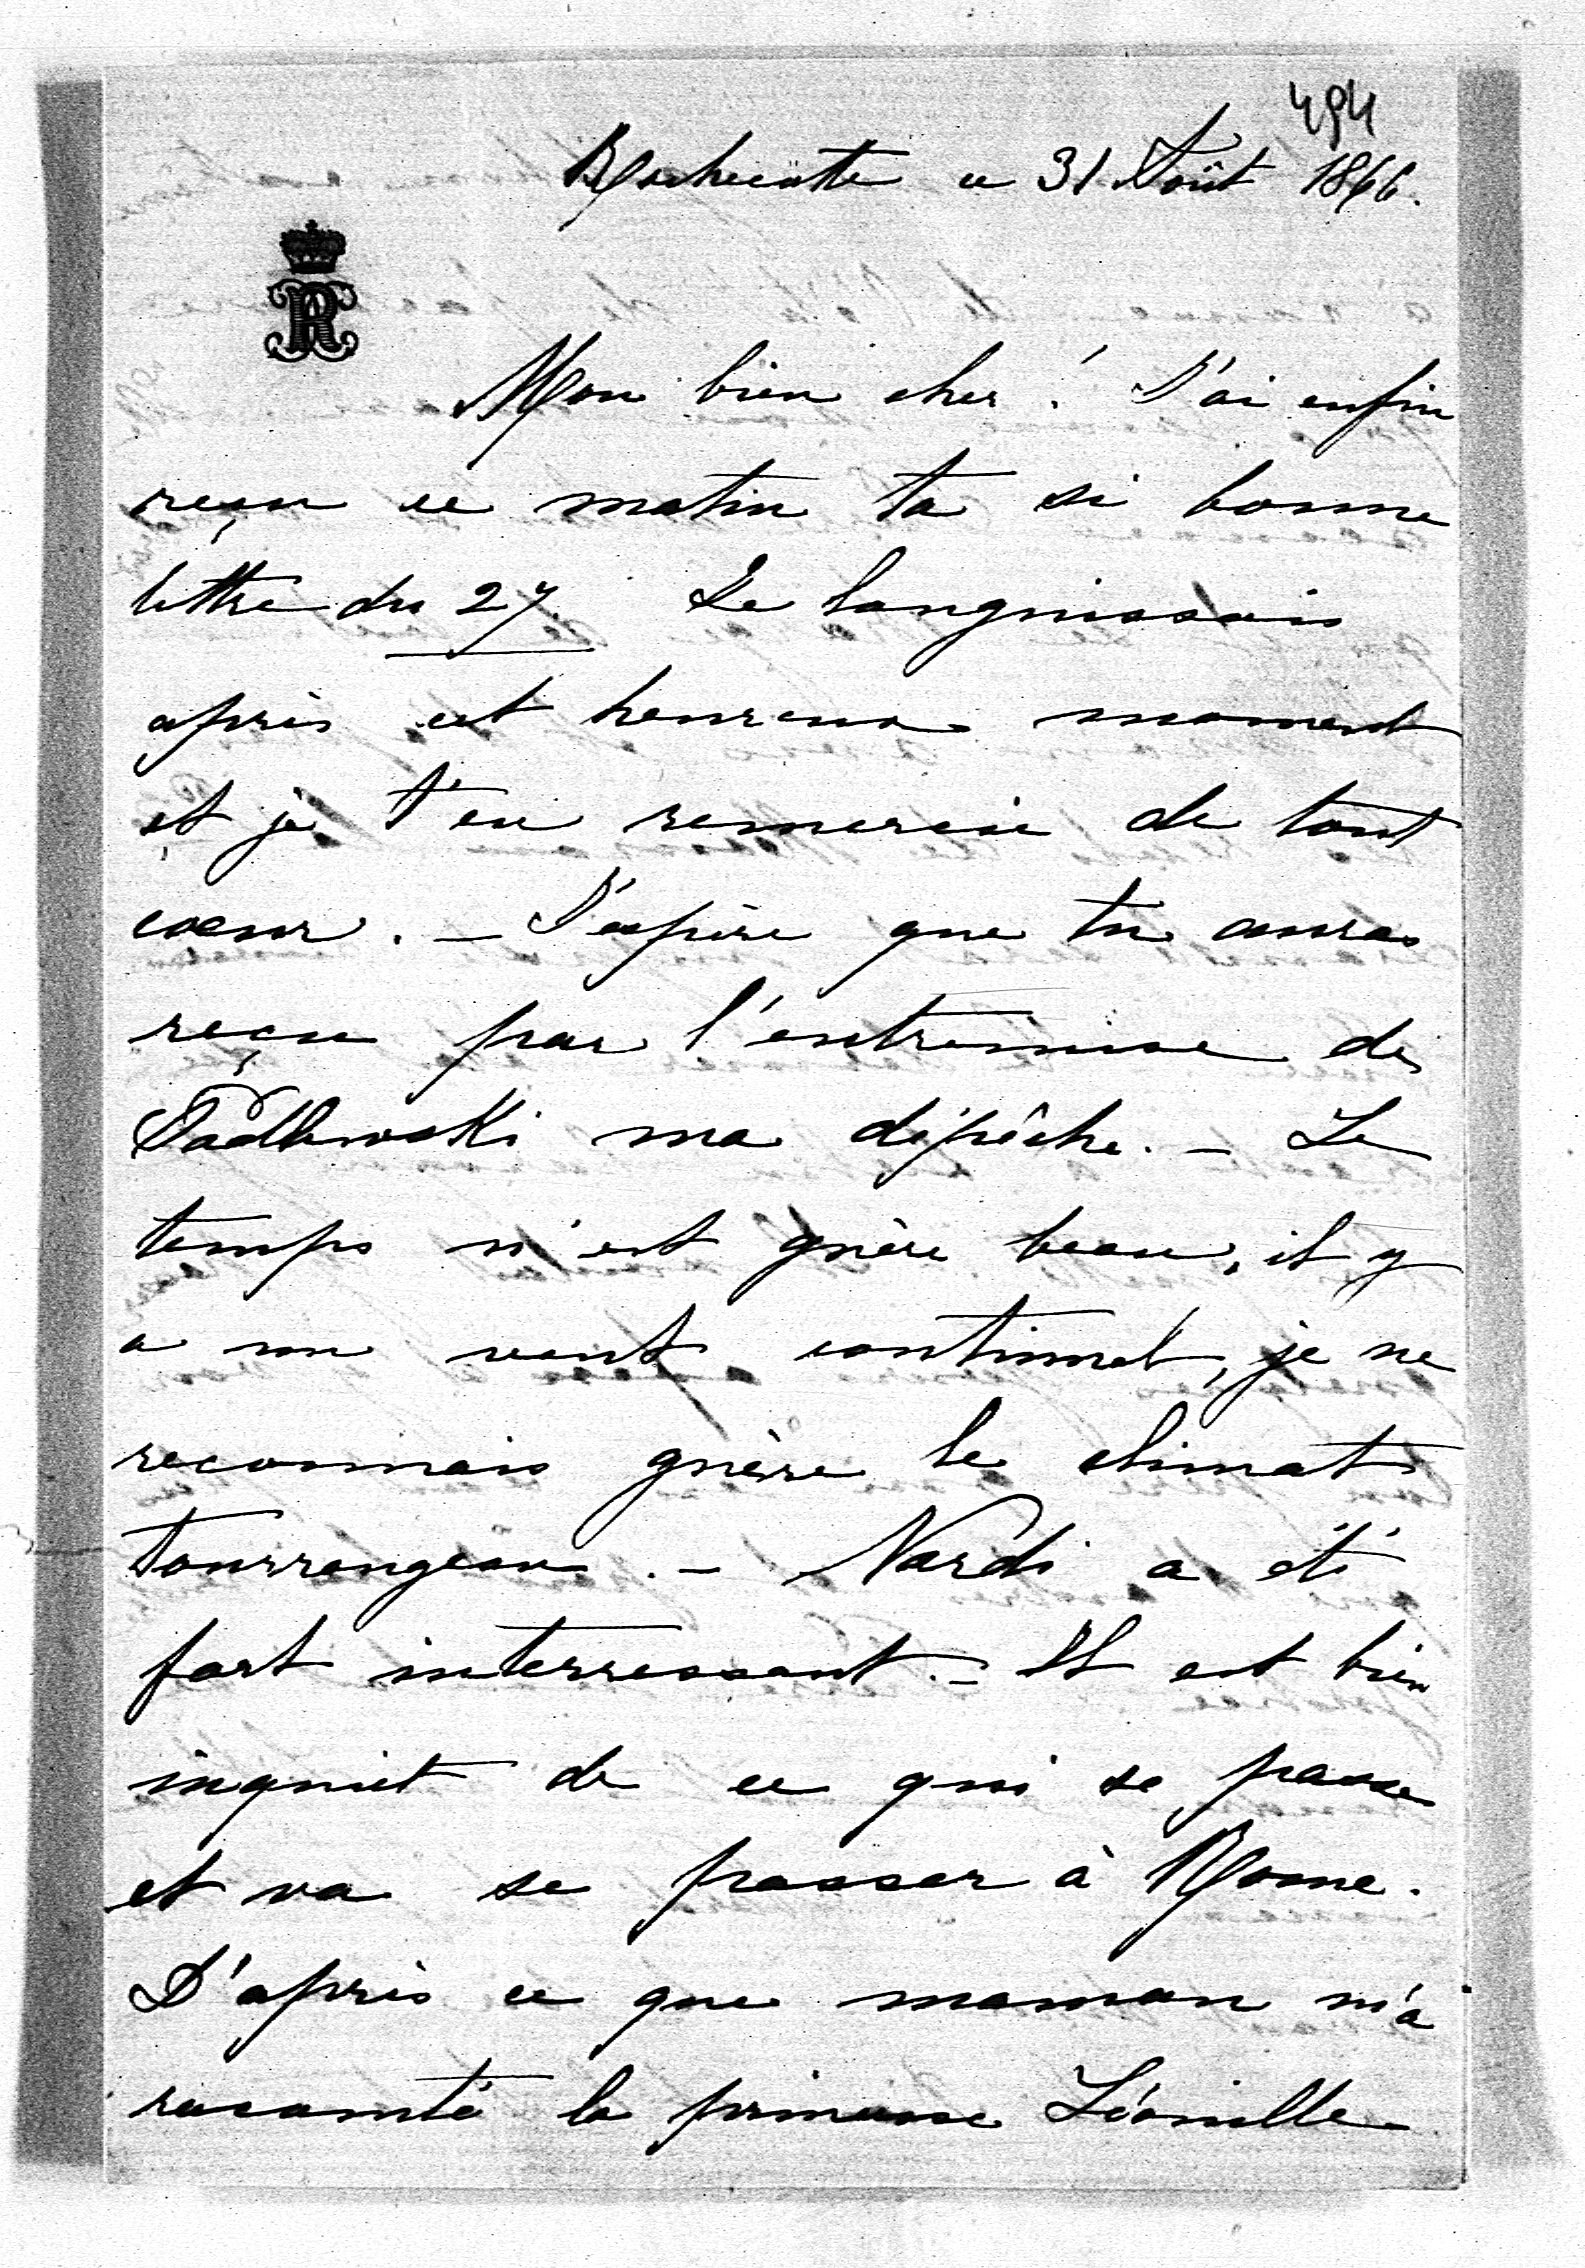 494
Rochecotte ce 31 Août 1866.
R
Mon bien cher ! J'ai enfin
reçu ce matin ta si bonne
lettre du 27 Je languissais
après cet heureux moment
et je t'en remercie de tout
coeur. — J'espère que tu auras
reçu par l'entremise de
Padlewski ma dépêche. — Le
temps n'est guère beau, il y
a un vent continuel, je ne
reconnais guère le climat
tourrangeau. — Nardi a été
fort interressant. — Il est bien
inquiet de ce qui se passe
et va se passer à Rome.
D'après ce que maman m'a
raconté la princesse Léonille